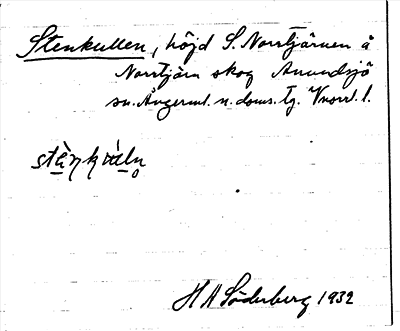 Stenkullen, höjd S. Norrtjärnen å
Norrtjärn skog Anundsjö
sn. Ångerml. n. doms. tg. Vnorrl. l.
H H Söderberg 1932